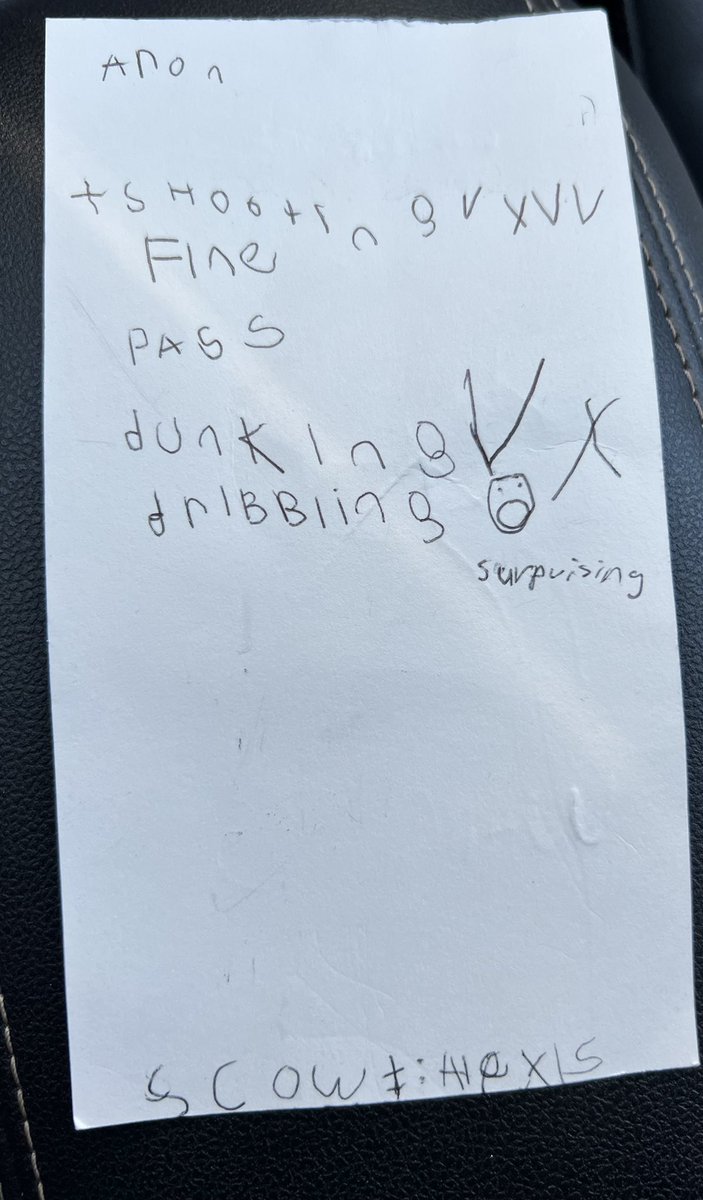 Anon
+ SHooting V X V V
Fine
PASS
dunking V X
driBBling
surpuising
SCOWt: Alexis